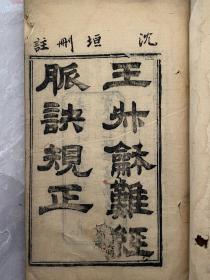 沈垣刪註
王叔龢難經
脈訣規正